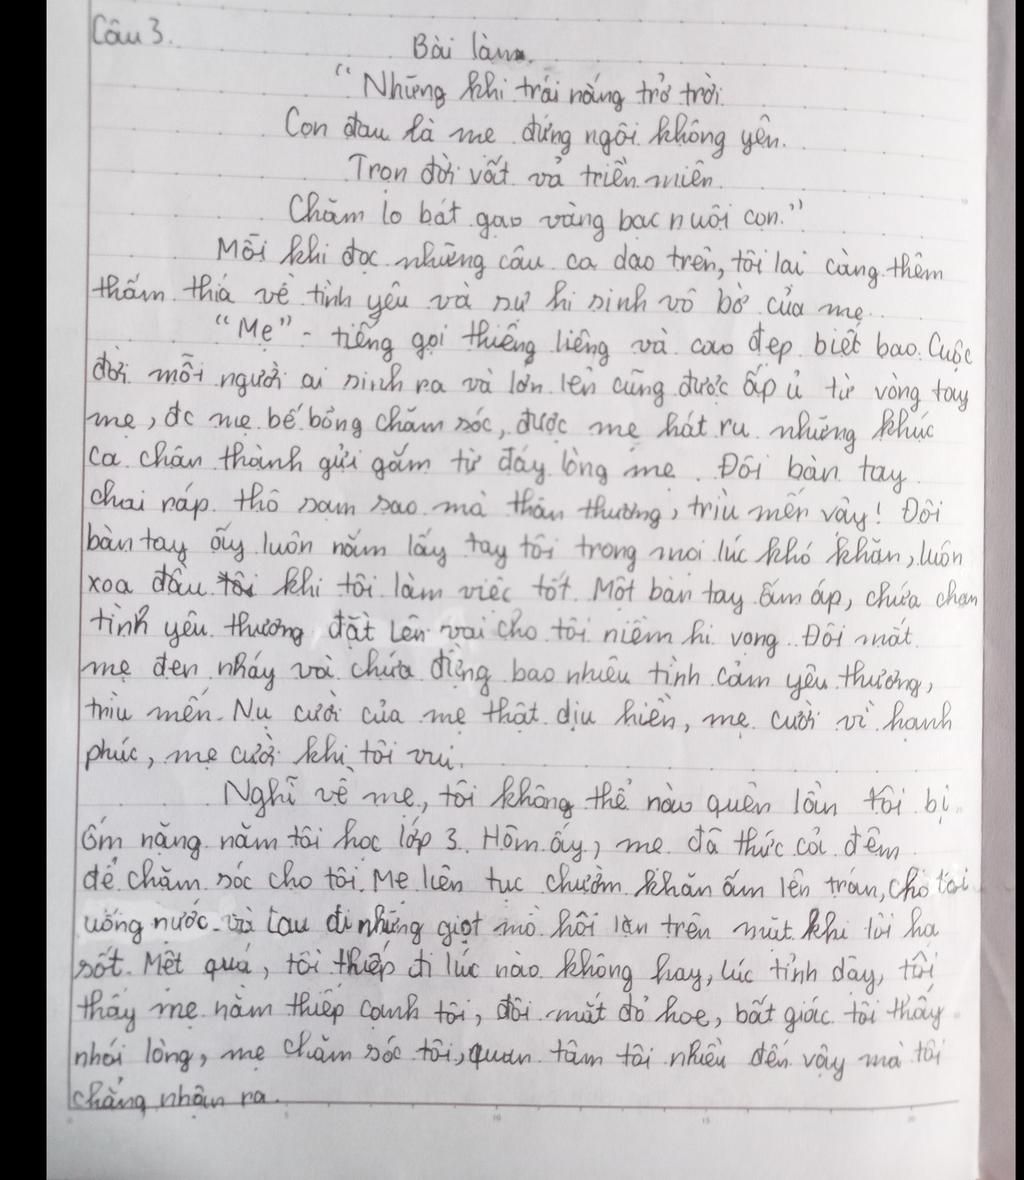 Câu 3.
Bài làm.
"Những khi trái nắng trở trời
Con đau là mẹ đứng ngồi không yên.
Trọn đời vất vả triền miên
Chăm lo bát gạo vàng bạc nuôi con."
Mỗi khi đọc những câu ca dao trên, tôi lại càng thêm
thấm thía về tình yêu và sự hi sinh vô bờ của mẹ.
"Mẹ" - tiếng gọi thiêng liêng và cao đẹp biết bao. Cuộc
đời mỗi người ai sinh ra và lớn lên cũng được ấp ủ từ vòng tay
mẹ, đc mẹ bế bồng chăm sóc, được mẹ hát ru những khúc
ca chân thành gửi gắm từ đáy lòng mẹ. Đôi bàn tay
chai ráp thô sam sao mà thân thương, trìu mến vậy! Đôi
bàn tay ấy luôn nắm lấy tay tôi trong mọi lúc khó khăn, luôn
xoa đầu tôi khi tôi làm việc tốt. Một bàn tay ấm áp, chứa chan
tình yêu thương đặt lên vai cho tôi niềm hi vọng. Đôi mắt
mẹ đen nháy và chứa đựng bao nhiêu tình cảm yêu thương,
trìu mến. Nụ cười của mẹ thật dịu hiền, mẹ cười vì hạnh
phúc, mẹ cười khi tôi vui.
Nghĩ về mẹ, tôi không thể nào quên lần tôi bị
ốm nặng năm tôi học lớp 3. Hôm ấy, mẹ đã thức cả đêm
để chăm sóc cho tôi. Mẹ liên tục chườm khăn ấm lên trán, cho tôi
uống nước và lau đi những giọt mồ hôi lăn trên mặt khi tôi hạ
sốt. Mệt quá, tôi thiếp đi lúc nào không hay, lúc tỉnh dậy, tôi
thấy mẹ nằm thiếp cạnh tôi, đôi mắt đỏ hoe, bất giác tôi thấy
nhói lòng, mẹ chăm sóc tôi, quan tâm tôi nhiều đến vậy mà tôi
chẳng nhận ra.